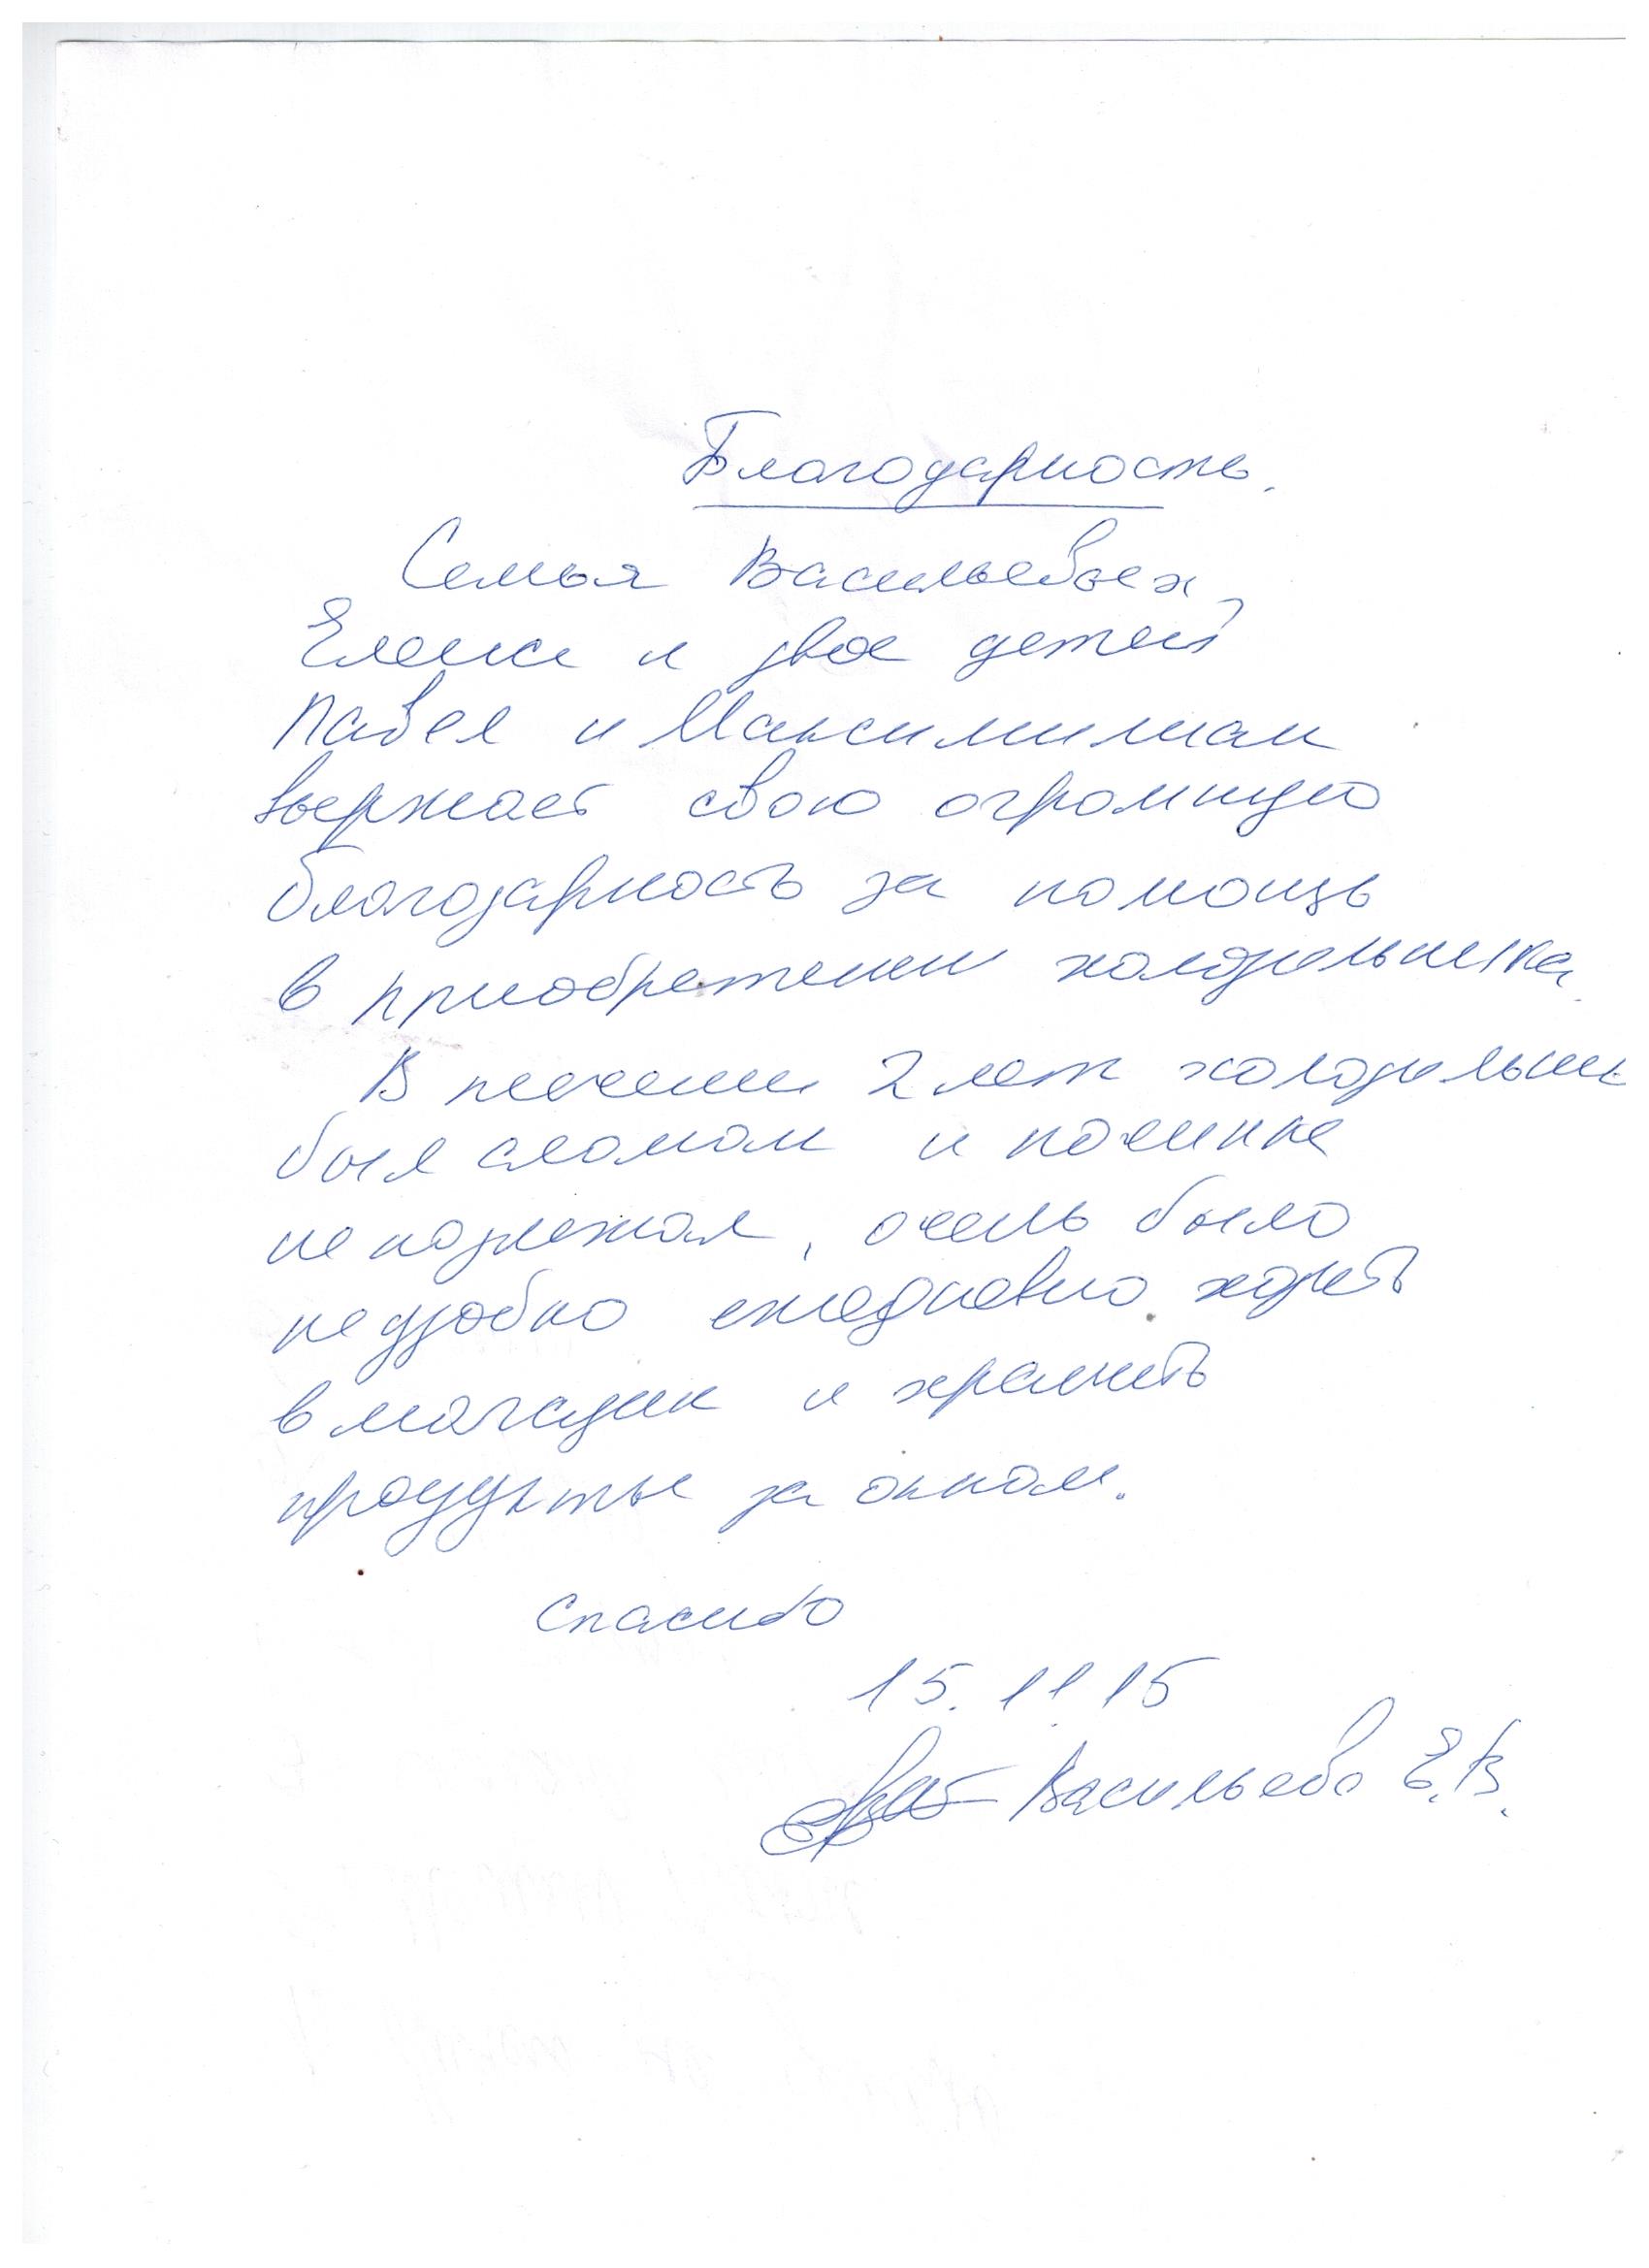 Благодарность.
Семья Васильевых,
Елена и двое детей
Павел и Максимилиан
выржает свою огромную
благодарность за помощь
в приобретении холодильника.
В течении 2 лет холодильник
был сломан и починке
не подлежал, очень было
не удобно ежедневно ходить
в магазин и хранить
продукты за окном.
Спасибо
15.11.15
Васильева Е.В.